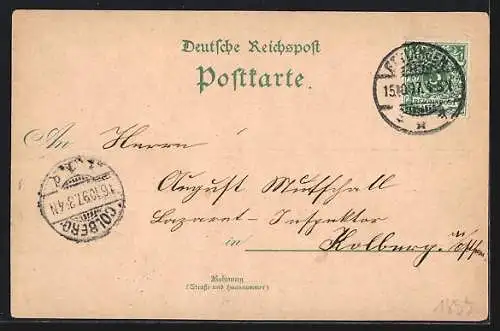 Deutsche Reichspost
Postkarte.
15.10.97
An Herrn
August Mutschall
Lazaret-Inspektor
16.10.97.3-4N
COLBERG
in Kolberg.
Wohnung
(Straße und Hausnummer)
1897